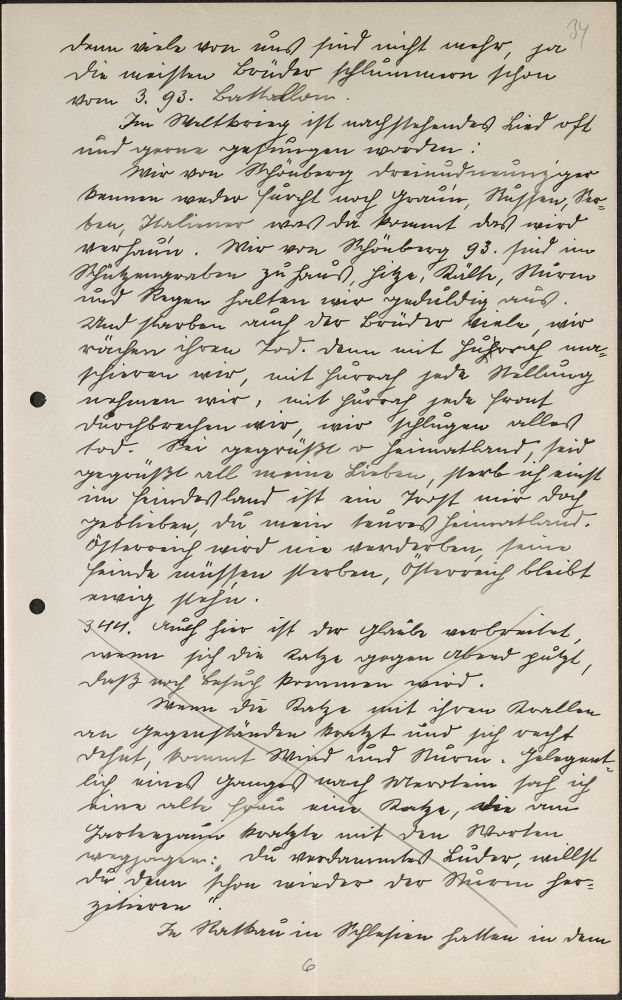 34
denn viele von uns sind nicht mehr, ja
die meisten Brüder schlummern schon
vom 3. 93. Battallon.
Im Weltkrieg ist nachstehendes Lied oft
und gerne gesungen worden:
Wir von Schönberg dreiundneunziger
kennen weder Furcht noch Grau'n, Russen, Ser=
ben, Italiener was da kommt das wird
verhau'n. Wir von Schönberg 93. sind im
Schützengraben zu Haus, Hitze, Kälte, Sturm
und Regen halten wir geduldig aus.
Und starben auch der Brüder viele, wir
rächen ihren Tod. denn mit Huhrrah mar=
schieren wir, mit Hurrah jede Stellung
nehmen wir, mit Hurrah jede Front
durchbrechen wir, wir schlugen alles
tod. Sei gegrüßt o Heimatland, seid
gegrüßt all meine Lieben, sterb ich einst
im Feindesland ist ein Trost mir doch
geblieben, du mein teures Heimatland.
Österreich wird nie verderben, seine
Feinde müssen sterben, Österreich bleibt
ewig stehn.
344. Auch hier ist der Glaube verbreitet,
wenn sich die Katze gegen Abend putzt,
daß noch Besuch kommen wird.
Wenn die Katze mit ihren Krallen
an Gegenständen kratzt und sich recht
dehnt, kommt Wind und Sturm. Gelegent=
lich eines Ganges nach Merotein sah ich
eine alte Frau eine Katze, die am
Gartenzaun kratzte mit den Worten
wegjagen: "Du verdammtes Luder, willst
du denn schon wieder der Sturm her=
zitieren".
In Ratkau in Schlesien hatten in dem
6